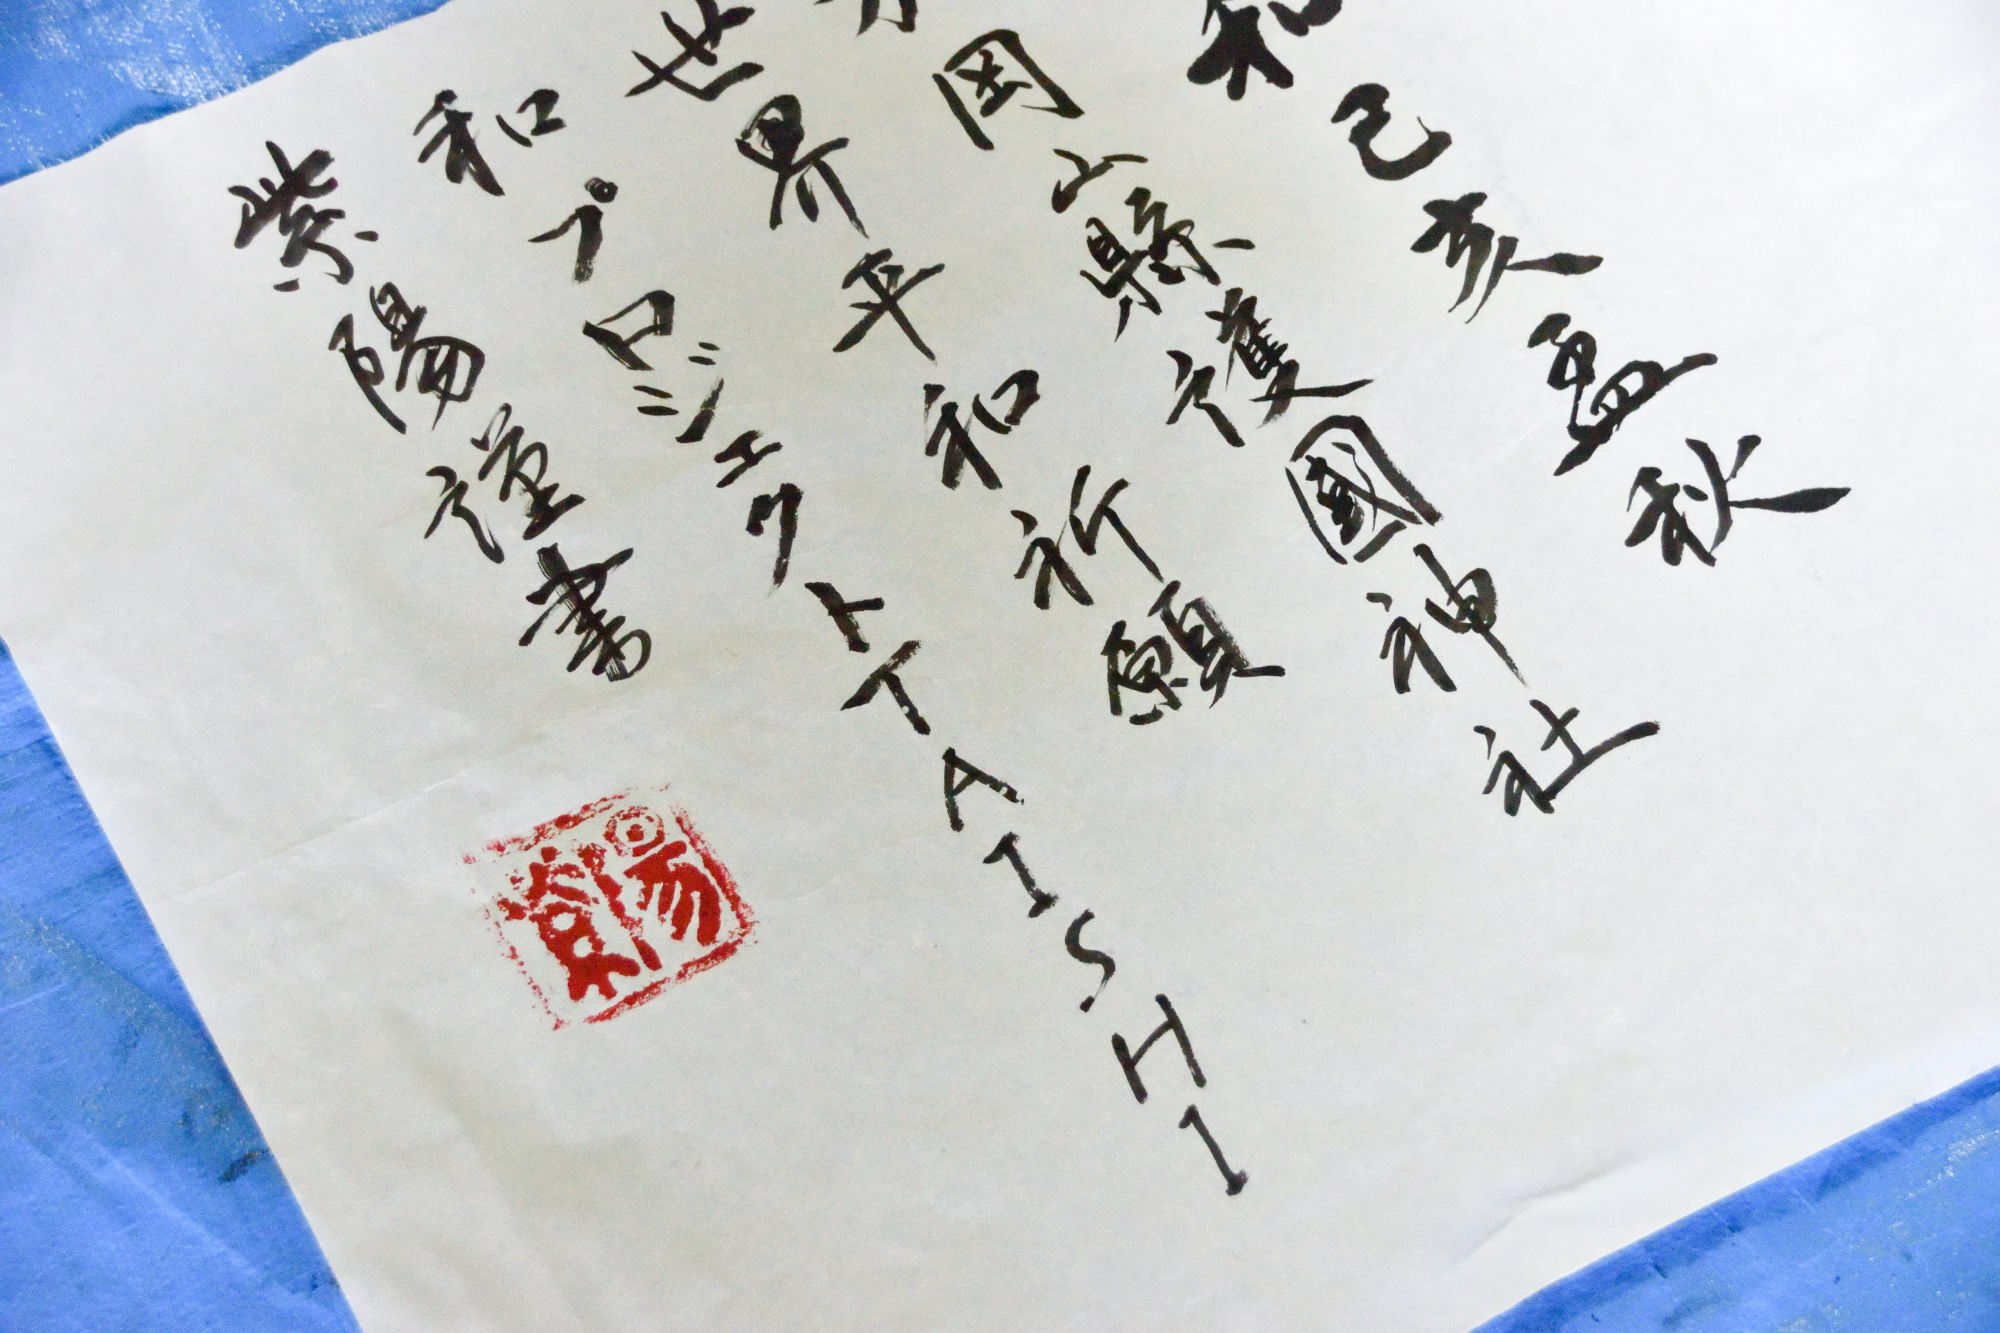 和己亥秋
岡山縣護國神社
世界平和祈願
和プロジェクトTAISHI
紫陽謹書